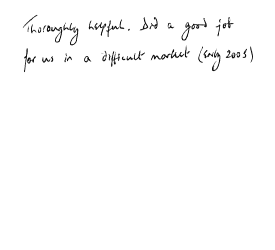 Thoroughly helpful. Did a good job
for us in a difficult market (early 2005)